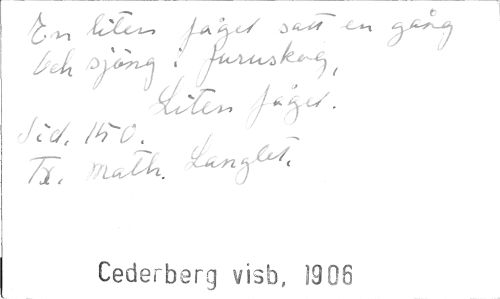 En liten fågel satt en gång
och sjöng i furuskog,
Liten fågel.
Sid. 150.
Tx. Math. Langlet.
Cederberg visb, 1906